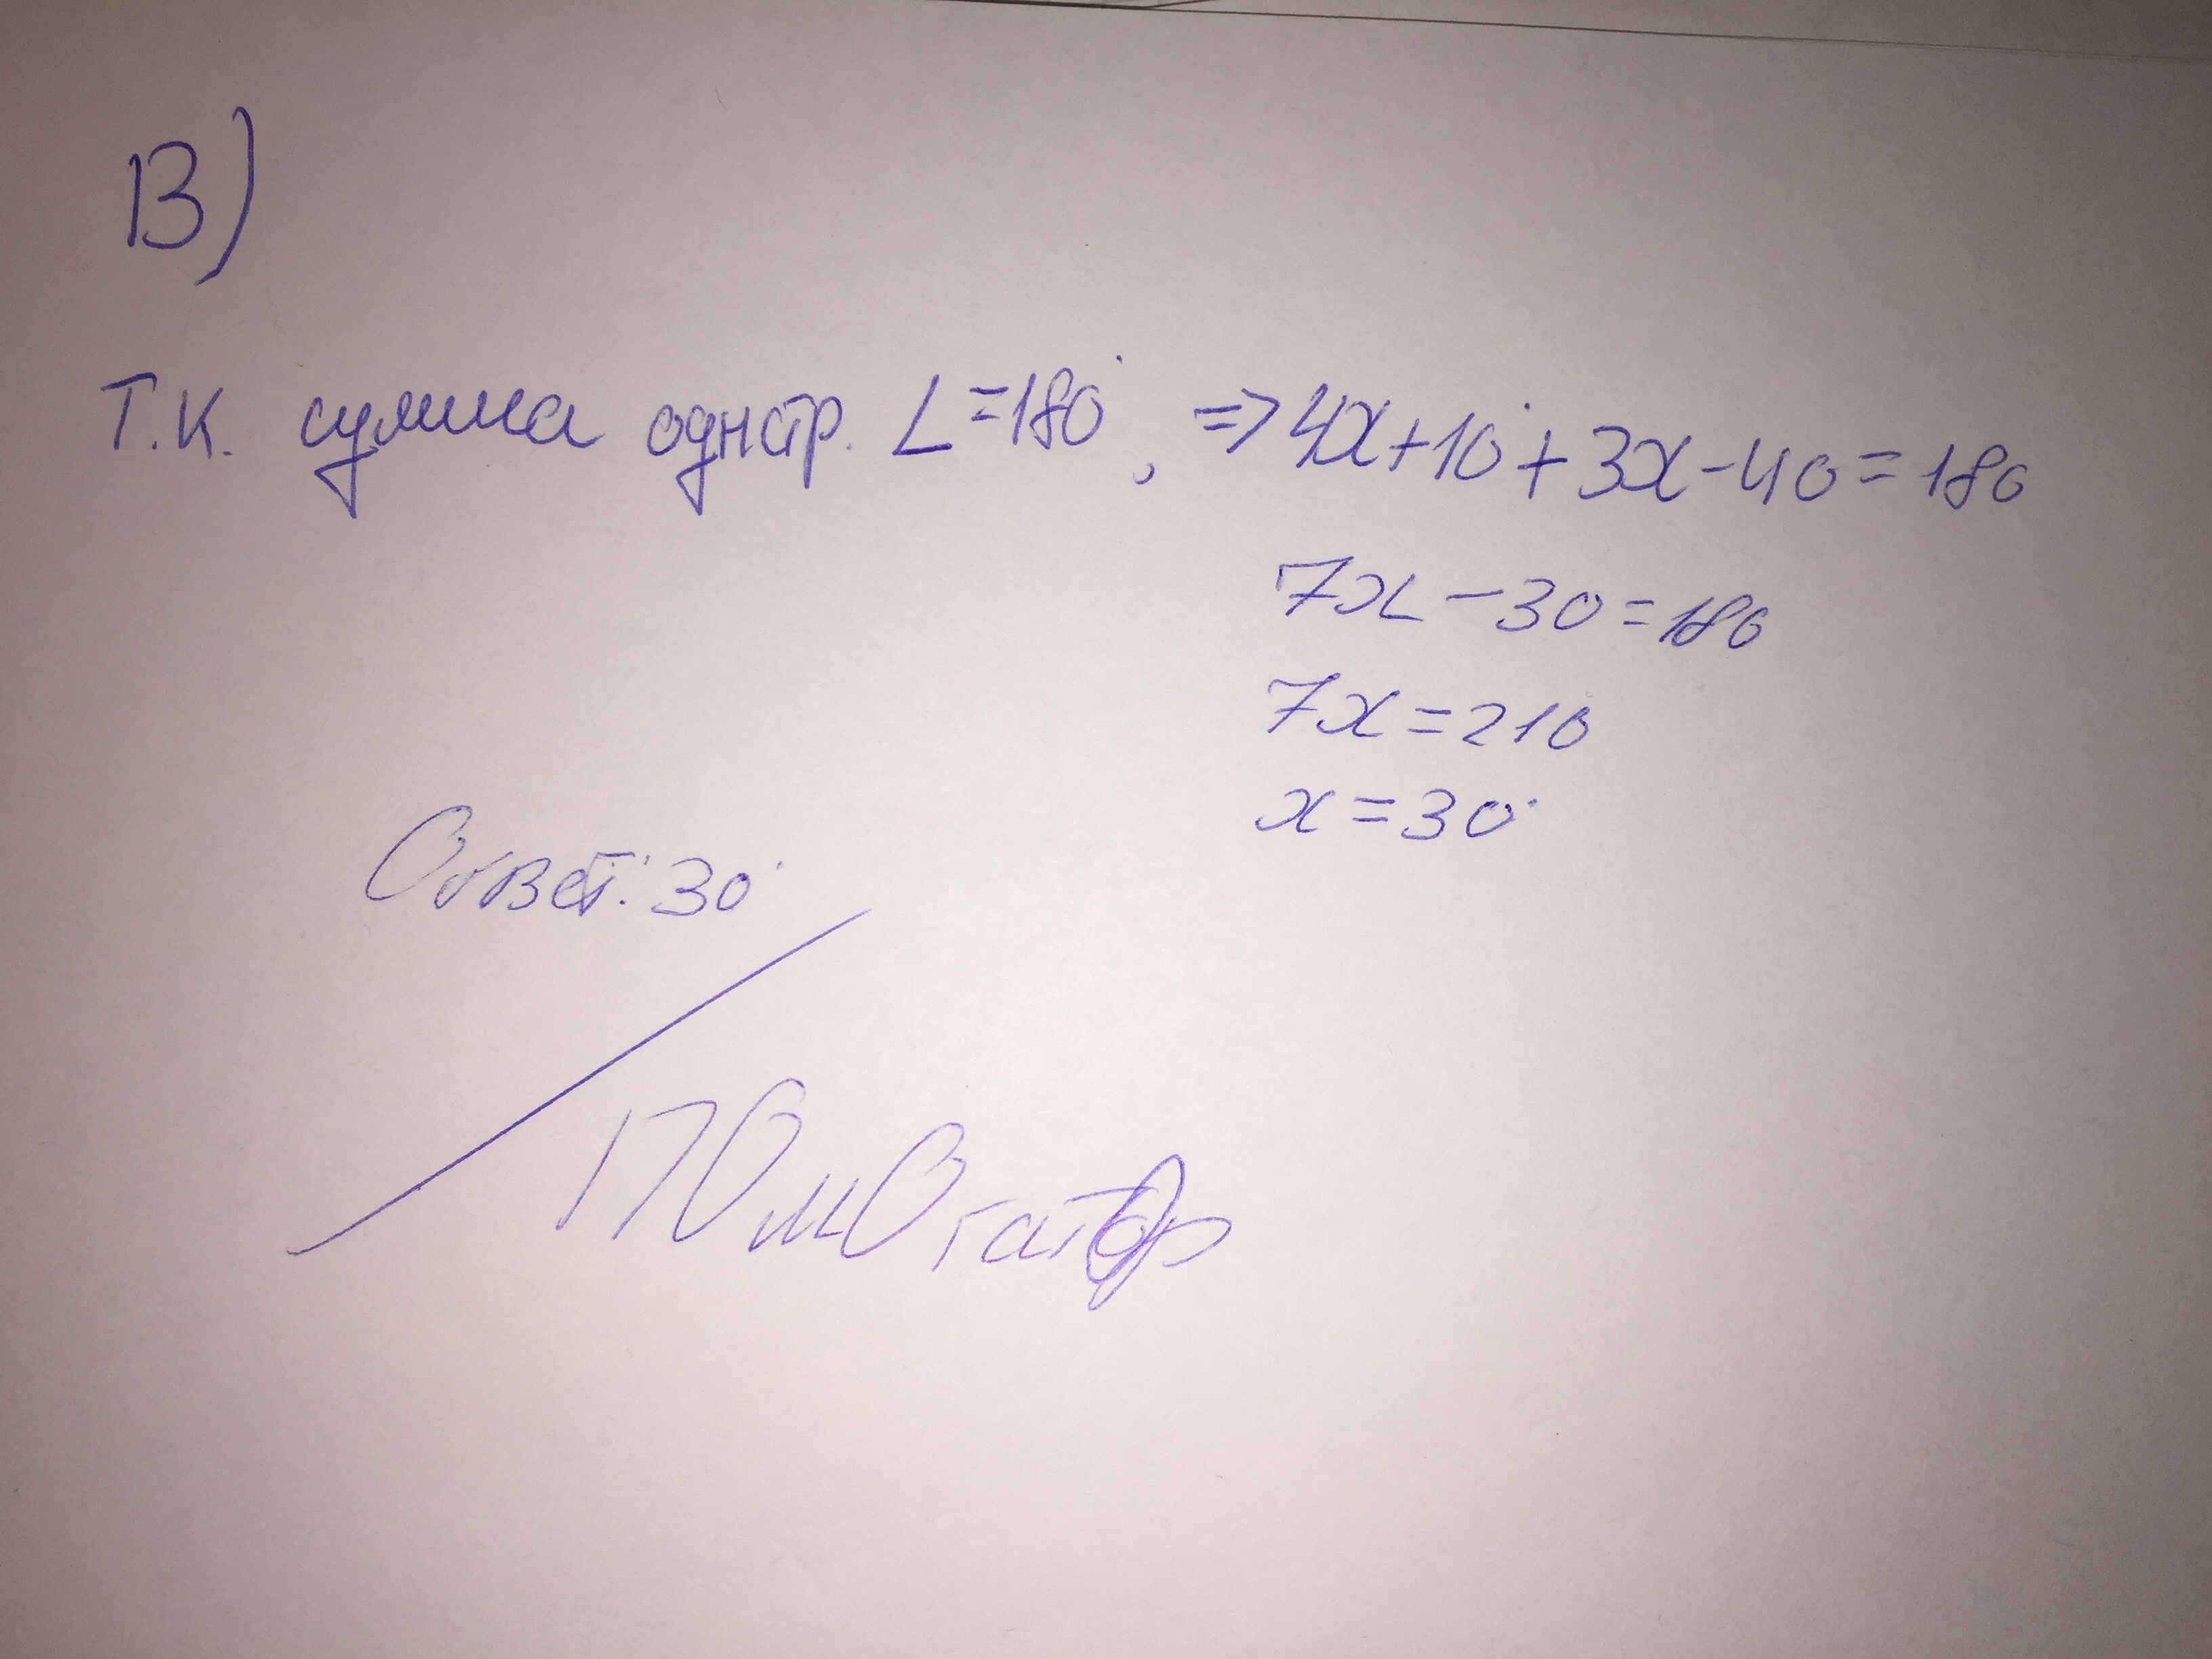 В)
Т.К. сумма однстр. ∠=180°, => 4x+10°+3x-40=180
7x-30=180
7x=210
x=30°
Ответ: 30°
ПОмОгатОр